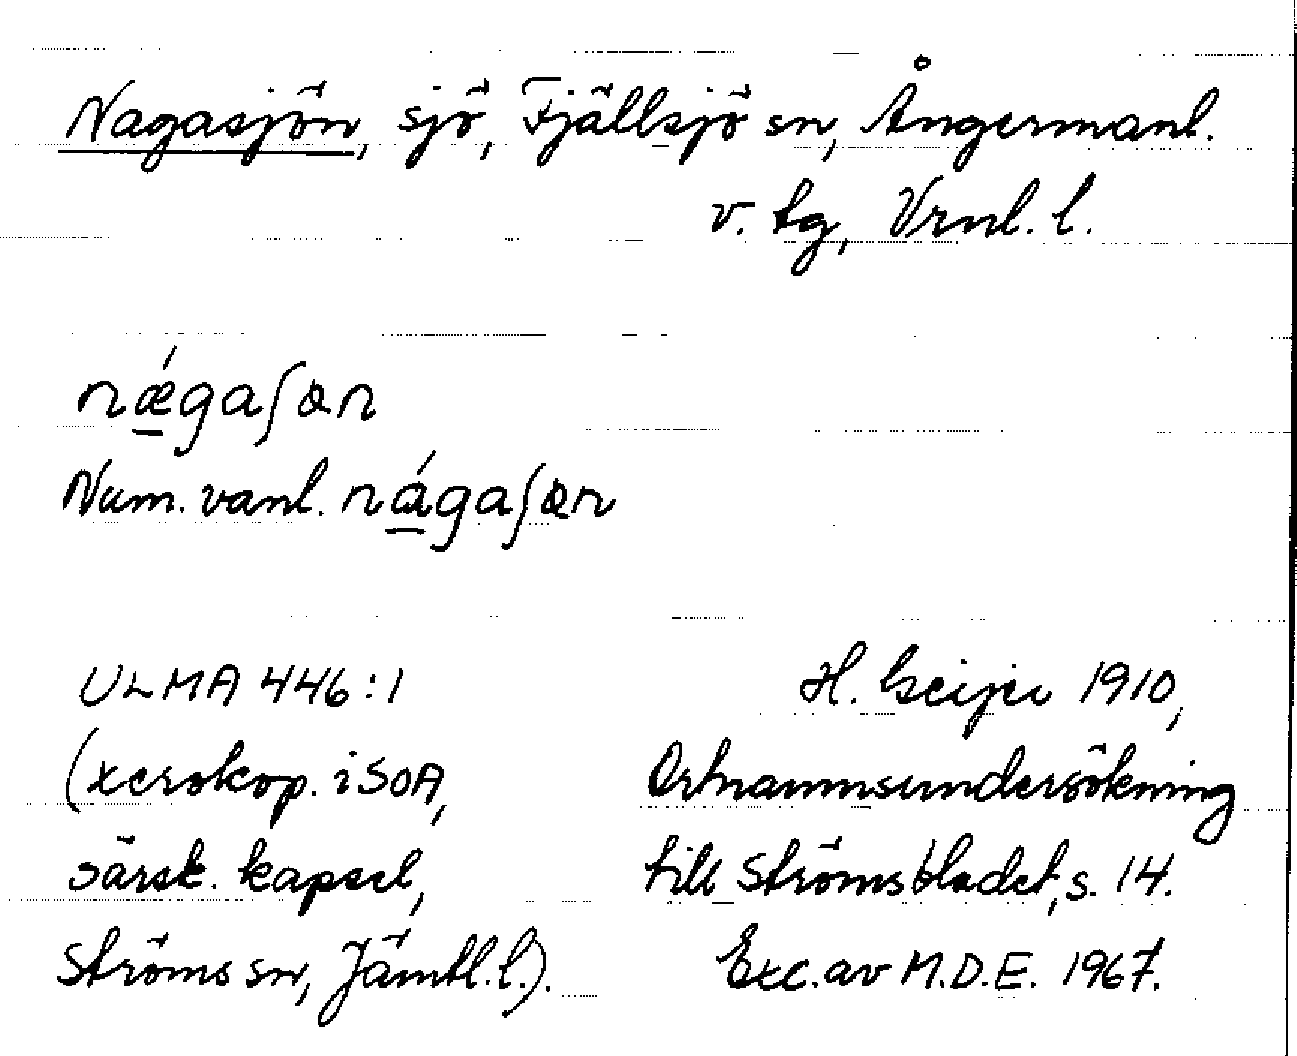 Nagasjön, sjö, Fjällsjö sn, Ångermanl.
v. tg, Vrnl. l.
nǽgaʃɷn
Num. vanl. nágaʃɷn
ULMA 446:1
(xerokop. i SOA,
särsk. kapsel,
Ströms sn, Jämtl. l.).
H. Geijer 1910,
Ortnamnsundersökning
till Strömsbladet, s. 14.
Exc. av M.D.E. 1967.